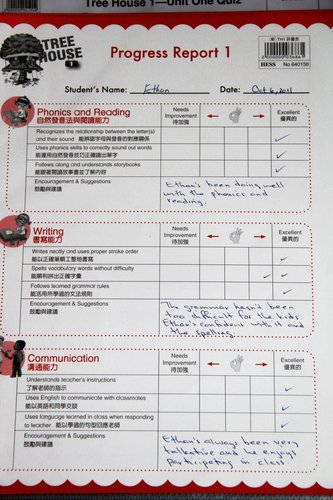 Tree House 1—Unit One Quiz
TREE
HOUSE
1
Progress Report 1
HESS No.640158
Student's Name: Ethan Date: Oct 6, 2011
Phonics and Reading
自然發音法與閱讀能力
Needs
Improvement
待加強
Excellent
優異的
Recognizes the relationship between the letter(s)
and their sound 能辨認字母與發音的對應關係
Uses phonic skills to correctly sound out words
能運用自然發音技巧正確讀出單字
Follows along and understands storybooks
能跟著閱讀故事書並了解內容
Encouragement & Suggestions
鼓勵與建議
Ethan's been doing well
with the phonics and
reading.
Writing
書寫能力
Needs
Improvement
待加強
Excellent
優異的
Writes neatly and uses proper stroke order
能以正確筆順工整地書寫
Spells vocabulary words without difficulty
能順利拼出正確字彙
Follows learned grammar rules
能活用所學過的文法規則
Encouragement & Suggestions
鼓勵與建議
The grammar hasn't been
too difficult for the kids.
Ethan's confident with it and
the spelling.
Communication
溝通能力
Needs
Improvement
待加強
Excellent
優異的
Understands teacher's instructions
了解老師的指示
Uses English to communicate with classmates
能以英語和同學交談
Uses language learned in class when responding
to teacher 能以學過的句型回應老師
Encouragement & Suggestions
鼓勵與建議
Ethan's always been very
talkative and he enjoys
participating in class.